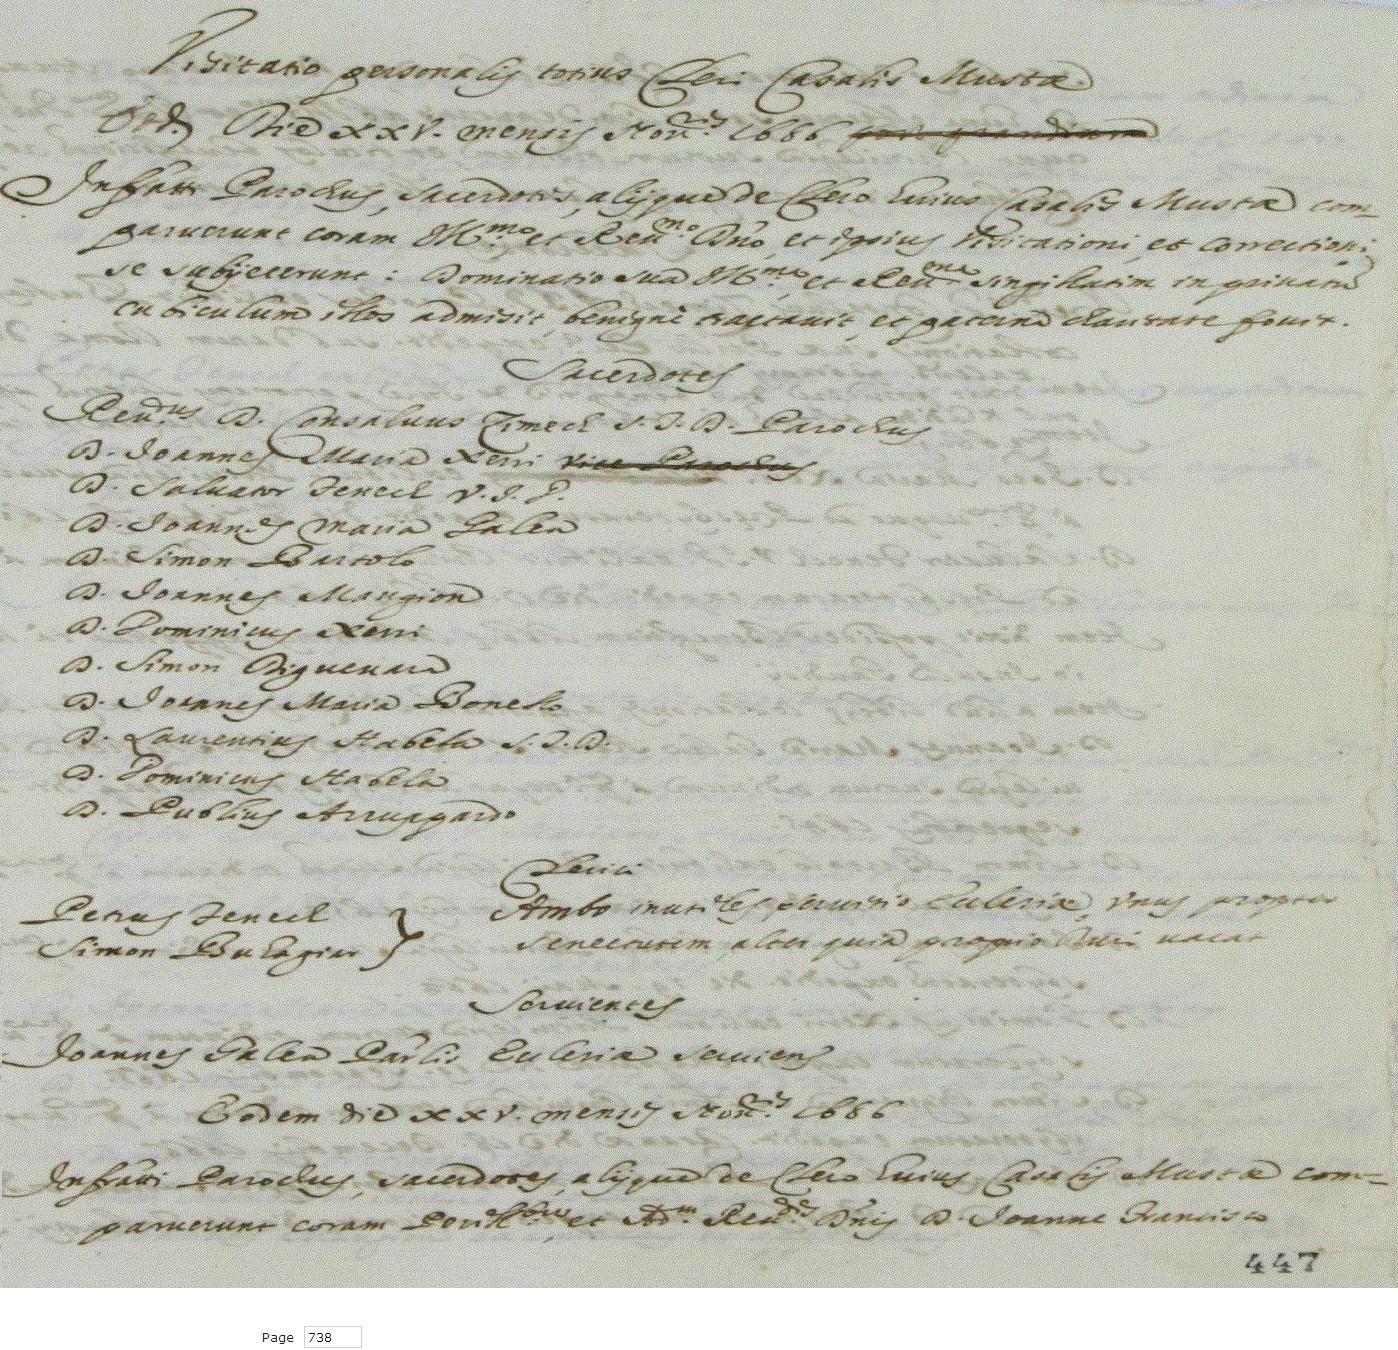 Visitatio personalis totius Cleri Casalis Musta
Die XXV. mensis Novris 1686
Infratti Parochus, sacerdotes, alijque de Clero huius Casalis Musta com-
paruerunt coram Illmo et Revmo Dno, et ipsius Visitationi, et correctioni
se subjecerunt: Dominatio sua Illma, et Revma singillatim in privatu
cubiculum illos admisit, benigne tractavit, et paterna charitate fovit.
Sacerdotes
Revdus D. Consalvus Zimech S.T.D. Parochus
D. Joannes Maria Xerri vice Parochus
D. Salvator Fenech V.I.P.
D. Joannes Maria Galea
D. Simon Bartolo
D. Joannes Mangion
D. Dominicus Xerri
D. Simon Biguenard
D. Joannes Maria Bonello
D. Laurentius Habela S.T.D.
D. Dominicus Habela
D. Publius
Clerici
Petrus Fenech
Simon Buhagiar
Ambo inutiles servitio Ecclesiæ, unus propter
senectutem, alter quia proprio vacat
Servientes
Joannes Galea Parlis Ecclesiæ serviens
Eodem die XXV. mensis Novris 1686
Infratti Parochus, sacerdotes, alijque de Clero huius Casalis Musta com-
paruerunt coram et Adm Revdis Dnis D. Joanne Francisco
447
Page 738